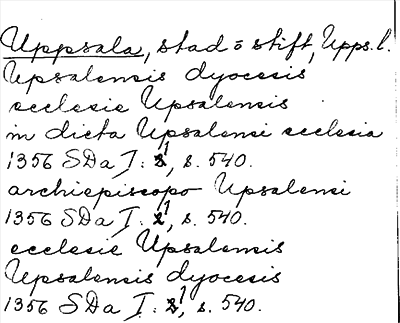 Uppsala, stad o stift, Upps. l.
Upsalensis dyocesis
ecclesie Upsalensis
in dicta Upsalensi ecclesia
1356 SDa I: 1, s. 540.
archiepiscopo Upsalensi
1356 SDa I: 1, s. 540.
ecclesie Upsalensis
Upsalensis dyocesis
1356 SDa I: 1, s. 540.